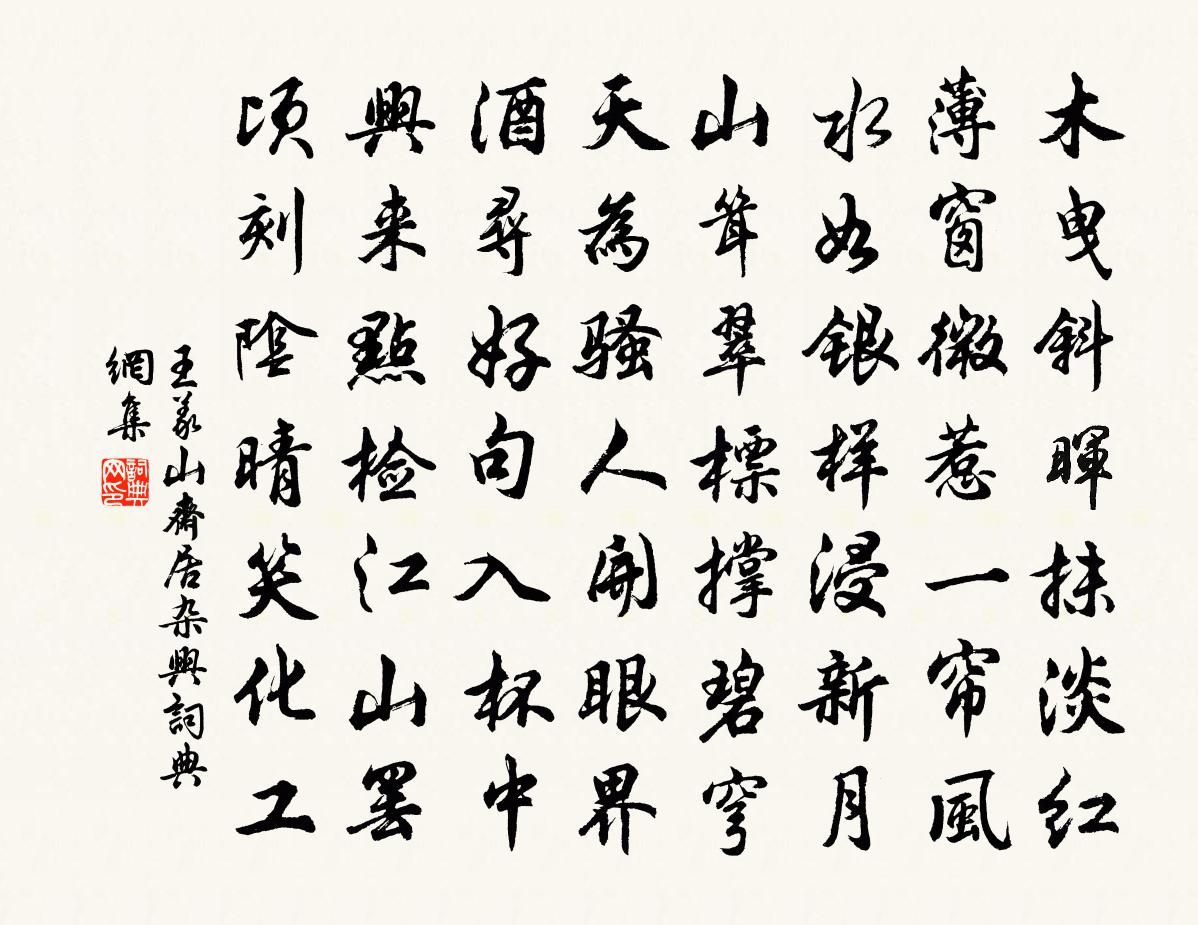 木曳斜暉抹淡紅
薄窗微惹一帘風
水如銀样浸新月
山聳翠標撑碧穹
天為騷人開眼界
酒尋好句入杯中
興来點檢江山罢
頃刻陰晴笑化工
王義山齋居杂興詞典
網集
詞典
网印